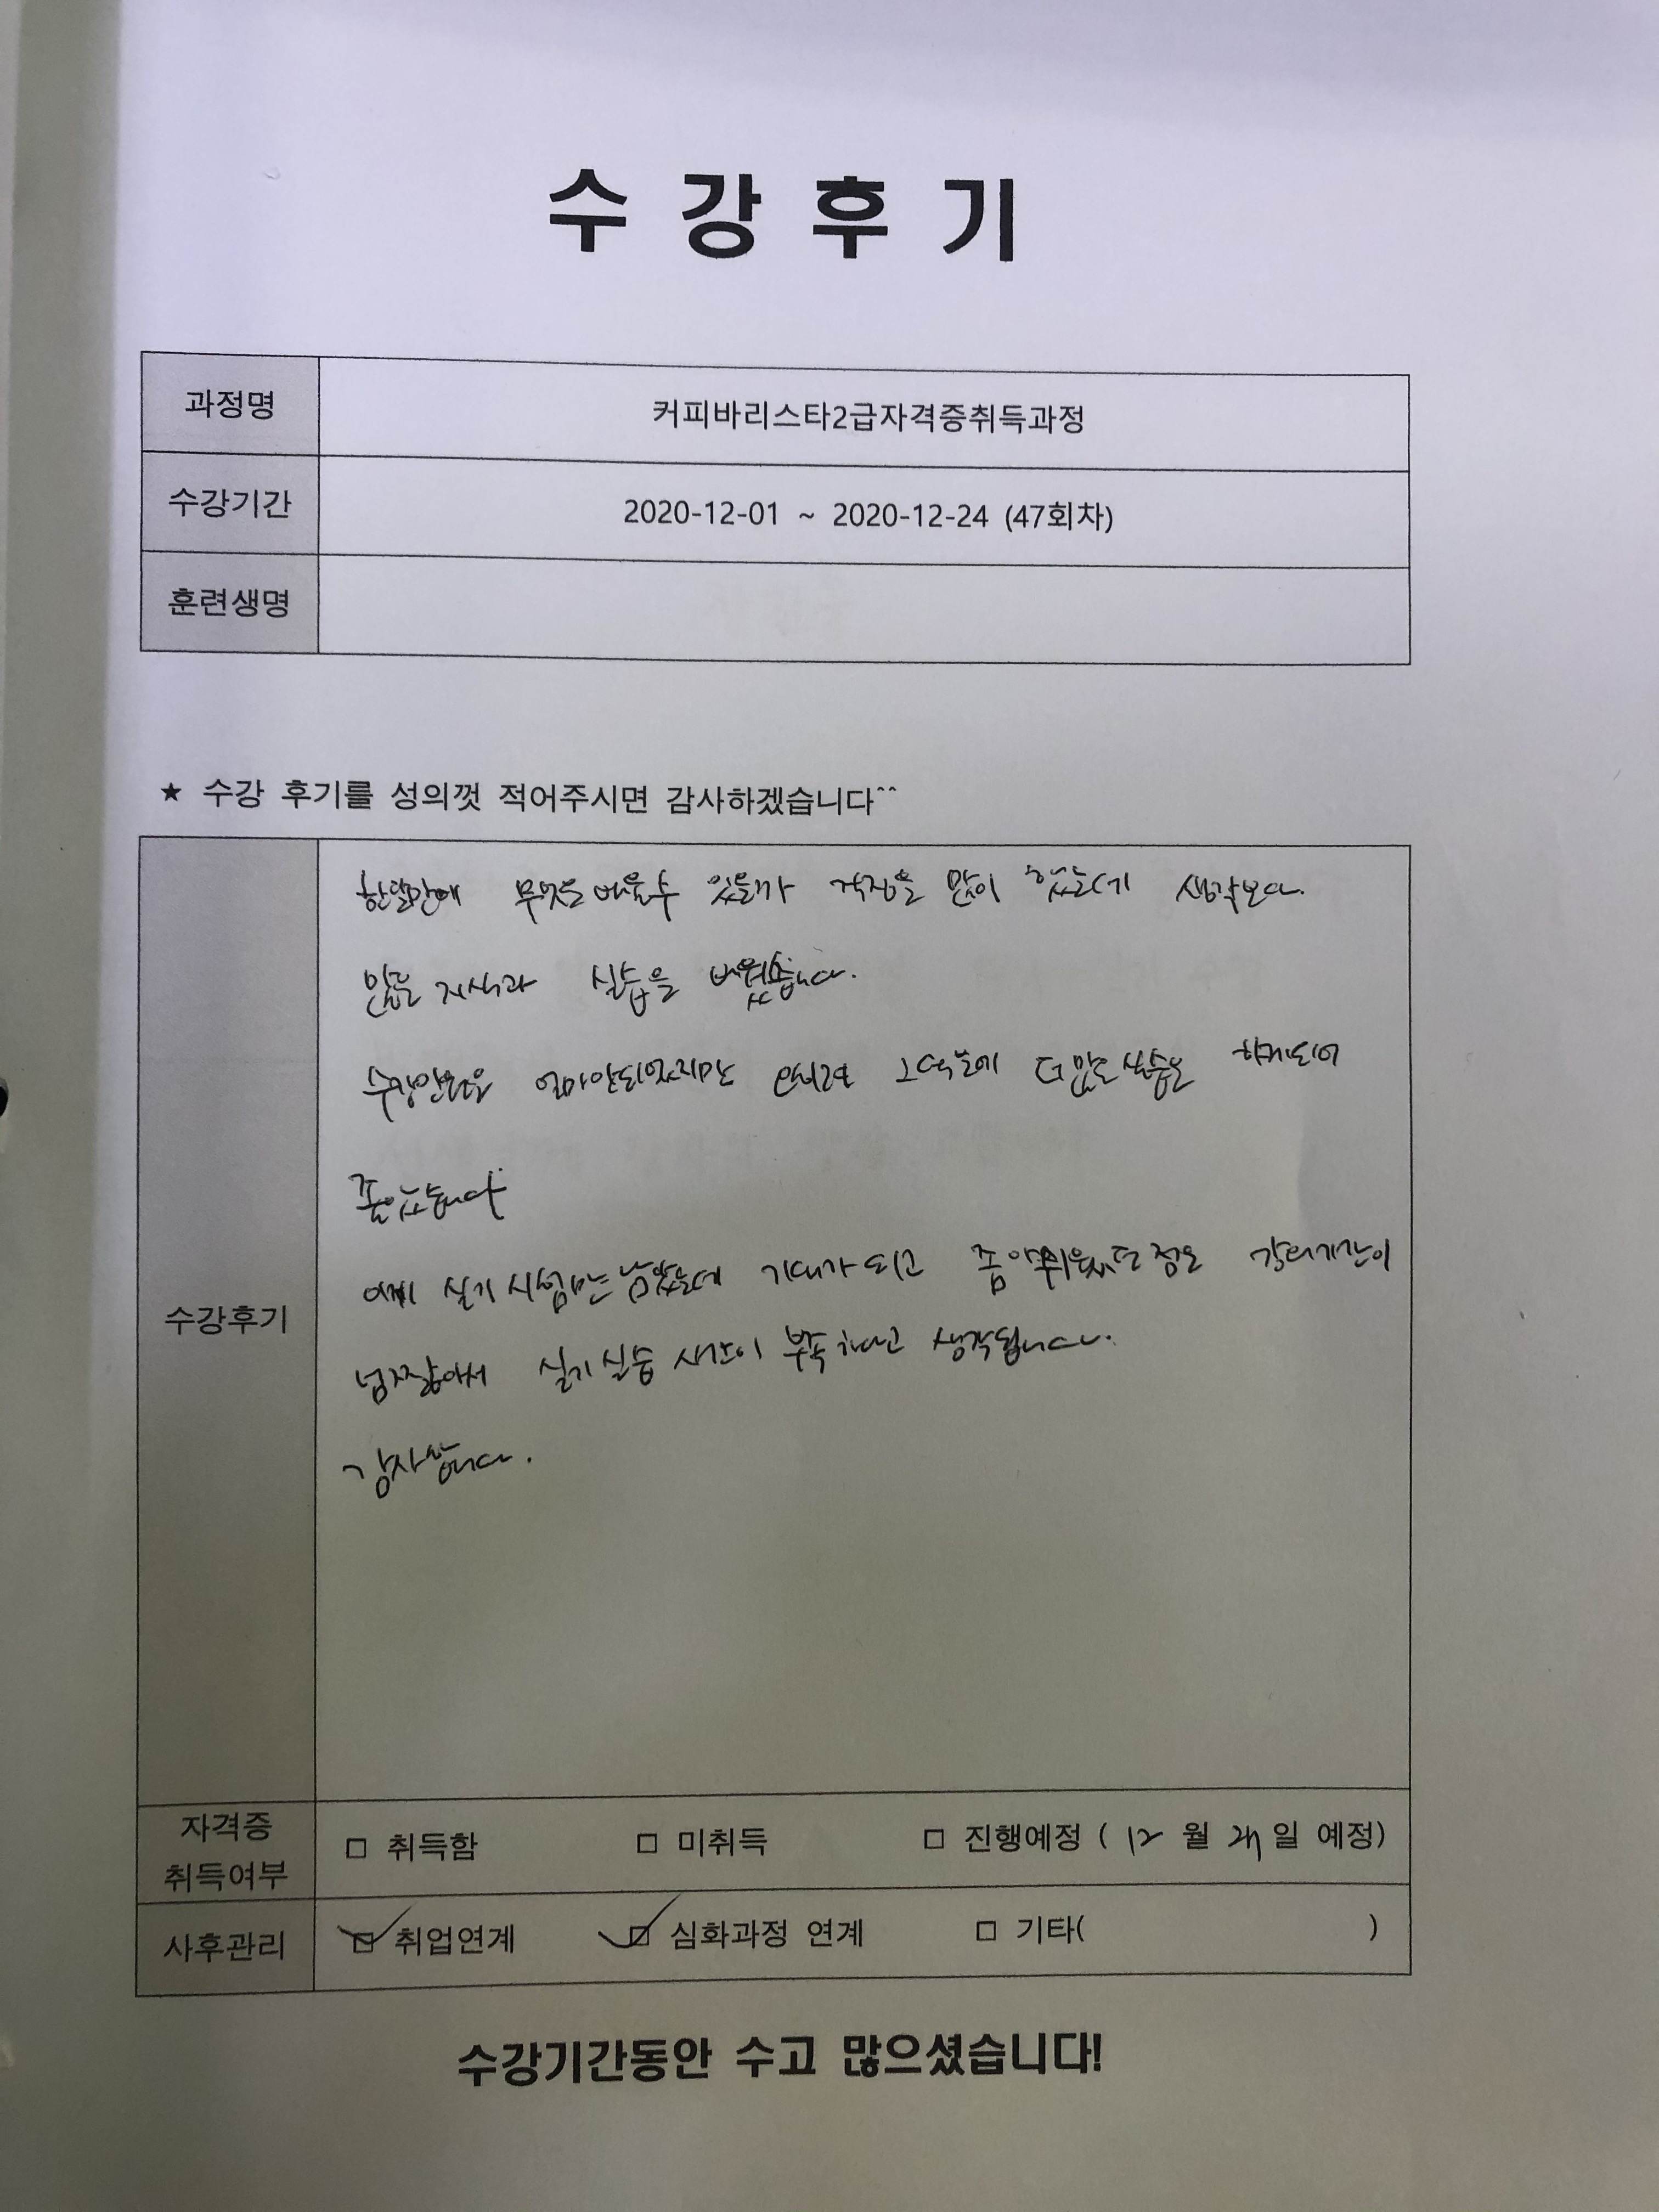 수 강 후 기
과정명 커피바리스타2급자격증취득과정
수강기간 2020-12-01 ~ 2020-12-24 (47회차)
훈련생명
★ 수강 후기를 성의껏 적어주시면 감사하겠습니다^^
수강후기
한달만에 무엇을 배울수 있을까 걱정을 많이 했는데 생각보다
많은 지식과 실습을 배웠습니다.
수강인원은 얼마안되었지만 오히려 그덕분에 더많은실습을 하게되어
좋았습니다
이제 실기시험만 남았는데 기대가 되고 좀 아쉬웠던점은 강의기간이
넘짧아서 실기실습 시간이 부족하다고 생각됩니다.
감사합니다.
자격증 취득여부 □ 취득함 □ 미취득 □ 진행예정 ( 12 월 일 예정)
사후관리 ☑ 취업연계 ☑ 심화과정 연계 □ 기타( )
수강기간동안 수고 많으셨습니다!